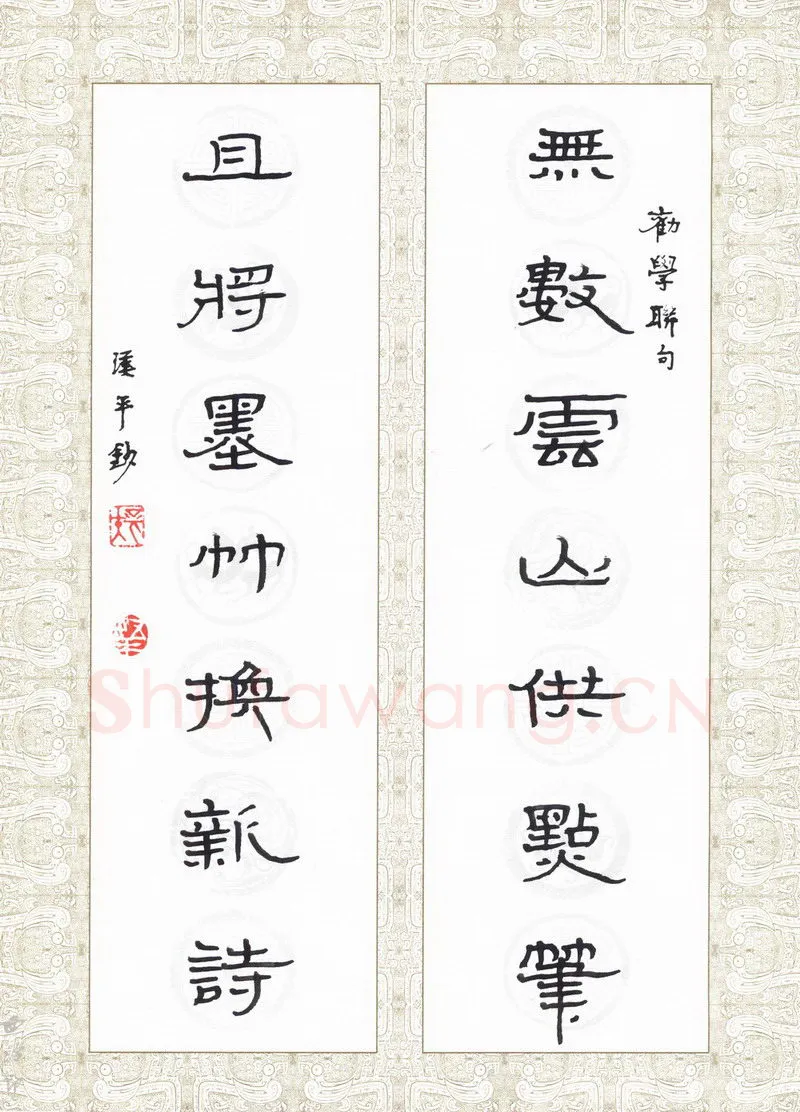 勸學聯句
無數雲山供點筆
且將墨竹換新詩
平鈔
Shufawang.CN